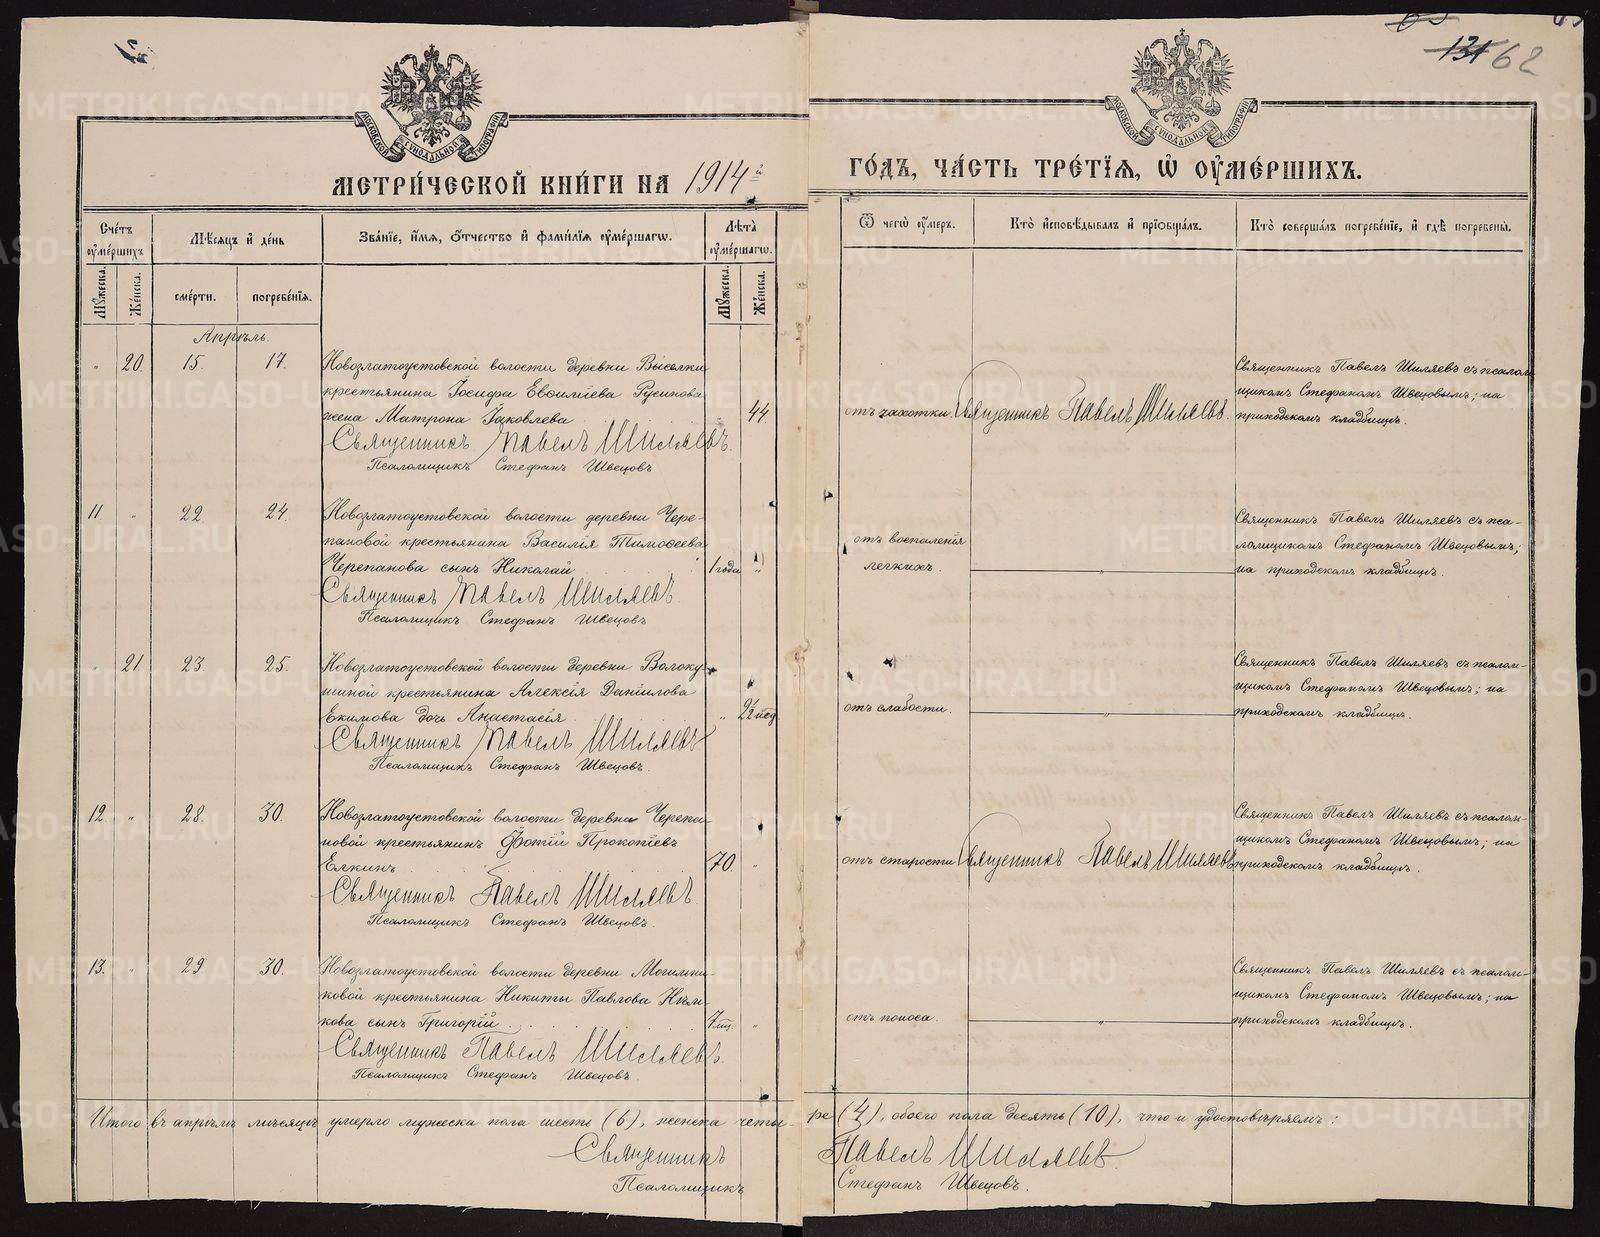 62
МЕТРИ́ЧЕСКОЙ КНИ́ГИ НА 1914й
ГО́ДЪ, ЧА́СТЬ ТРЕ́ТІѦ, Ѡ ОУМЕ́РШИХЪ.
Сче́тъ оуме́ршихъ
Мѣ́сяцъ и де́нь
Зва́ніе, и́мя, о́тчество и фами́лія оуме́ршагѡ.
Лѣ́та оуме́ршагѡ.
Ѿ чегѡ̀ оу́меръ.
Кто̀ исповѣ́дывалъ и пріобща́лъ.
Кто̀ соверша́лъ погребе́ніе, и гдѣ̀ погребены̀.
Му́жеска.
Же́нска.
сме́рти.
погребе́нія.
Му́жеска.
Же́нска.
Апрѣль.
" 20. 15. 17.
Новозлатоустовской волости деревни Выселки
крестьянина Іосифа Евѳиміева Русинова
жена Матрона Іаковлева 44.
Священникъ Павелъ Шиляевъ.
Псаломщикъ Стефанъ Швецовъ
отъ чахотки.
Священникъ Павелъ Шиляевъ.
Священникъ Павелъ Шиляевъ съ псалом-
щикомъ Стефаномъ Швецовымъ; на
приходскомъ кладбищѣ.
11. " 22. 24.
Новозлатоустовской волости деревни Чере-
пановой крестьянина Василія Тимоѳеева
Черепанова сынъ Николай 1 года "
Священникъ Павелъ Шиляевъ
Псаломщикъ Стефанъ Швецовъ
отъ воспаленія
легкихъ.
"
Священникъ Павелъ Шиляевъ съ пса-
ломщикомъ Стефаномъ Швецовымъ;
на приходскомъ кладбищѣ.
" 21. 23. 25.
Новозлатоустовской волости деревни Волоку-
шиной крестьянина Алексія Даніилова
Екимова дочь Анастасія. " 2½ нед.
Священникъ Павелъ Шиляевъ
Псаломщикъ Стефанъ Швецовъ.
отъ слабости.
"
Священникъ Павелъ Шиляевъ съ псалом-
щикомъ Стефаномъ Швецовымъ; на
приходскомъ кладбищѣ.
12. " 28. 30.
Новозлатоустовской волости деревни Черепа-
новой крестьянинъ Фотій Прокопіевъ
Елкинъ 70. "
Священникъ Павелъ Шиляевъ
Псаломщикъ Стефанъ Швецовъ.
отъ старости
Священникъ Павелъ Шиляевъ
Священникъ Павелъ Шиляевъ съ псалом-
щикомъ Стефаномъ Швецовымъ; на
приходскомъ кладбищѣ.
13. " 29. 30.
Новозлатоустовской волости деревни Могильни-
ковой крестьянина Никиты Павлова
сынъ Григорій 7 мц. "
Священникъ Павелъ Шиляевъ.
Псаломщикъ Стефанъ Швецовъ.
отъ поноса.
"
Священникъ Павелъ Шиляевъ съ псалом-
щикомъ Стефаномъ Швецовымъ; на
приходскомъ кладбищѣ.
Итого въ апрѣлѣ мѣсяцѣ умерло мужеска пола шесть (6), женска четы-
ре (4), обоего пола десять (10), что и удостовѣряемъ:
Священникъ Павелъ Шиляевъ.
Псаломщикъ Стефанъ Швецовъ.
METRIKI.GASO-URAL.RU